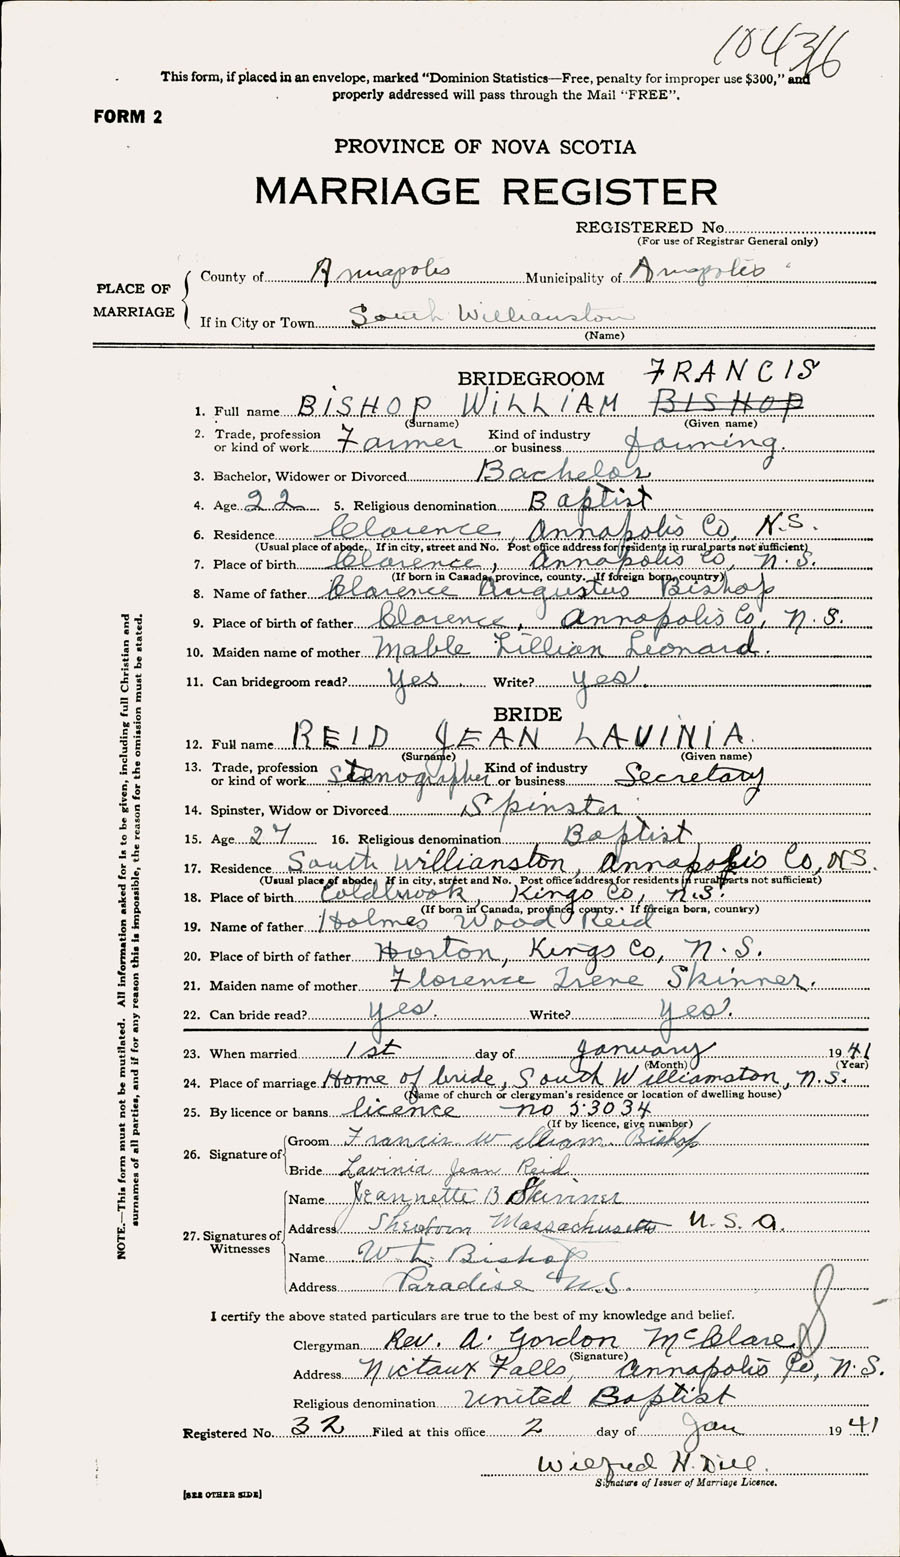 10436
This form, if placed in an envelope, marked "Dominion Statistics—Free, penalty for improper use $300," and
properly addressed will pass through the Mail "FREE".
FORM 2
PROVINCE OF NOVA SCOTIA
MARRIAGE REGISTER
REGISTERED No.
(For use of Registrar General only)
PLACE OF MARRIAGE
County of Annapolis Municipality of Annapolis
If in City or Town South Willianston
(Name)
BRIDEGROOM FRANCIS
1. Full name BISHOP WILLIAM BISHOP
(Surname) (Given name)
2. Trade, profession or kind of work Farmer Kind of industry or business farming.
3. Bachelor, Widower or Divorced Bachelor
4. Age 22 5. Religious denomination Baptist
6. Residence Clarence, Annapolis Co, N.S.
(Usual place of abode. If in city, street and No. Post office address for residents in rural parts not sufficient)
7. Place of birth Clarence, Annapolis Co, N.S.
(If born in Canada, province, county. If foreign born, country)
8. Name of father Clarence Augustus Bishop
9. Place of birth of father Clarence, Annapolis Co, N.S.
10. Maiden name of mother Mable Lillian Leonard.
11. Can bridegroom read? Yes. Write? yes.
BRIDE
12. Full name REID JEAN LAVINIA.
(Surname) (Given name)
13. Trade, profession or kind of work Stenographer Kind of industry or business Secretary
14. Spinster, Widow or Divorced Spinster
15. Age 27 16. Religious denomination Baptist
17. Residence South Willianston, Annapolis Co, NS.
(Usual place of abode. If in city, street and No. Post office address for residents in rural parts not sufficient)
18. Place of birth Coldbrook, Kings Co, N.S.
(If born in Canada, province, county. If foreign born, country)
19. Name of father Holmes Wood Reid
20. Place of birth of father Horton, Kings Co, N.S.
21. Maiden name of mother Florence Irene Skinner.
22. Can bride read? yes. Write? yes.
23. When married 1st day of January 1941
(Month) (Year)
24. Place of marriage Home of bride, South Williamston, N.S.
(Name of church or clergyman's residence or location of dwelling house)
25. By licence or banns licence no 53034
(If by licence, give number)
26. Signature of
Groom Francis William Bishop
Bride Lavinia Jean Reid
27. Signatures of Witnesses
Name Jeannette B Skinner
Address Sherborn Massachusetts U.S.A.
Name W L Bishop
Address Paradise N.S.
I certify the above stated particulars are true to the best of my knowledge and belief.
Clergyman Rev. A. Gordon McClare
(Signature)
Address Nictaux Falls, Annapolis Co, N.S.
Religious denomination United Baptist
Registered No. 32 Filed at this office 2 day of Jan 1941
Wilfred H. Dill.
Signature of Issuer of Marriage Licence.
[SEE OTHER SIDE]
NOTE.—This form must not be mutilated. All information asked for is to be given, including full Christian and
surnames of all parties, and if for any reason this is impossible, the reason for the omission must be stated.